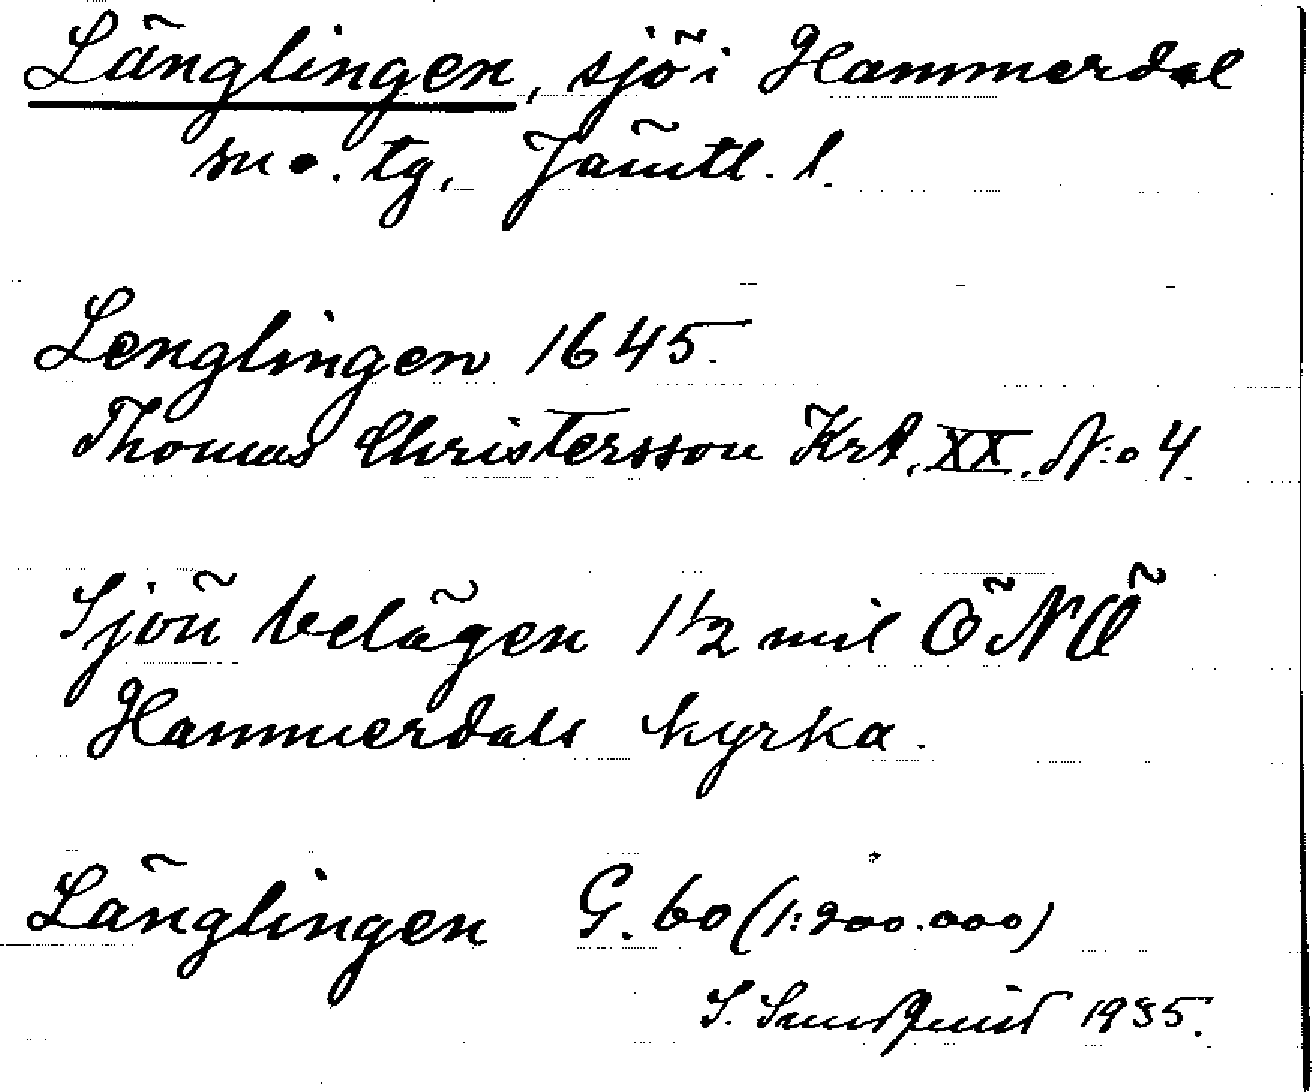 Länglingen, sjö i Hammerdal
sn o. tg, Jämtl. l.
Lenglingen 1645.
Thomas Christersson Krt. XX. N:o 4.
Sjön belägen 1 1/2 mil ÖNÖ
Hammerdals kyrka.
Länglingen G. 60 (1:200.000)
S. Sundquist 1935.